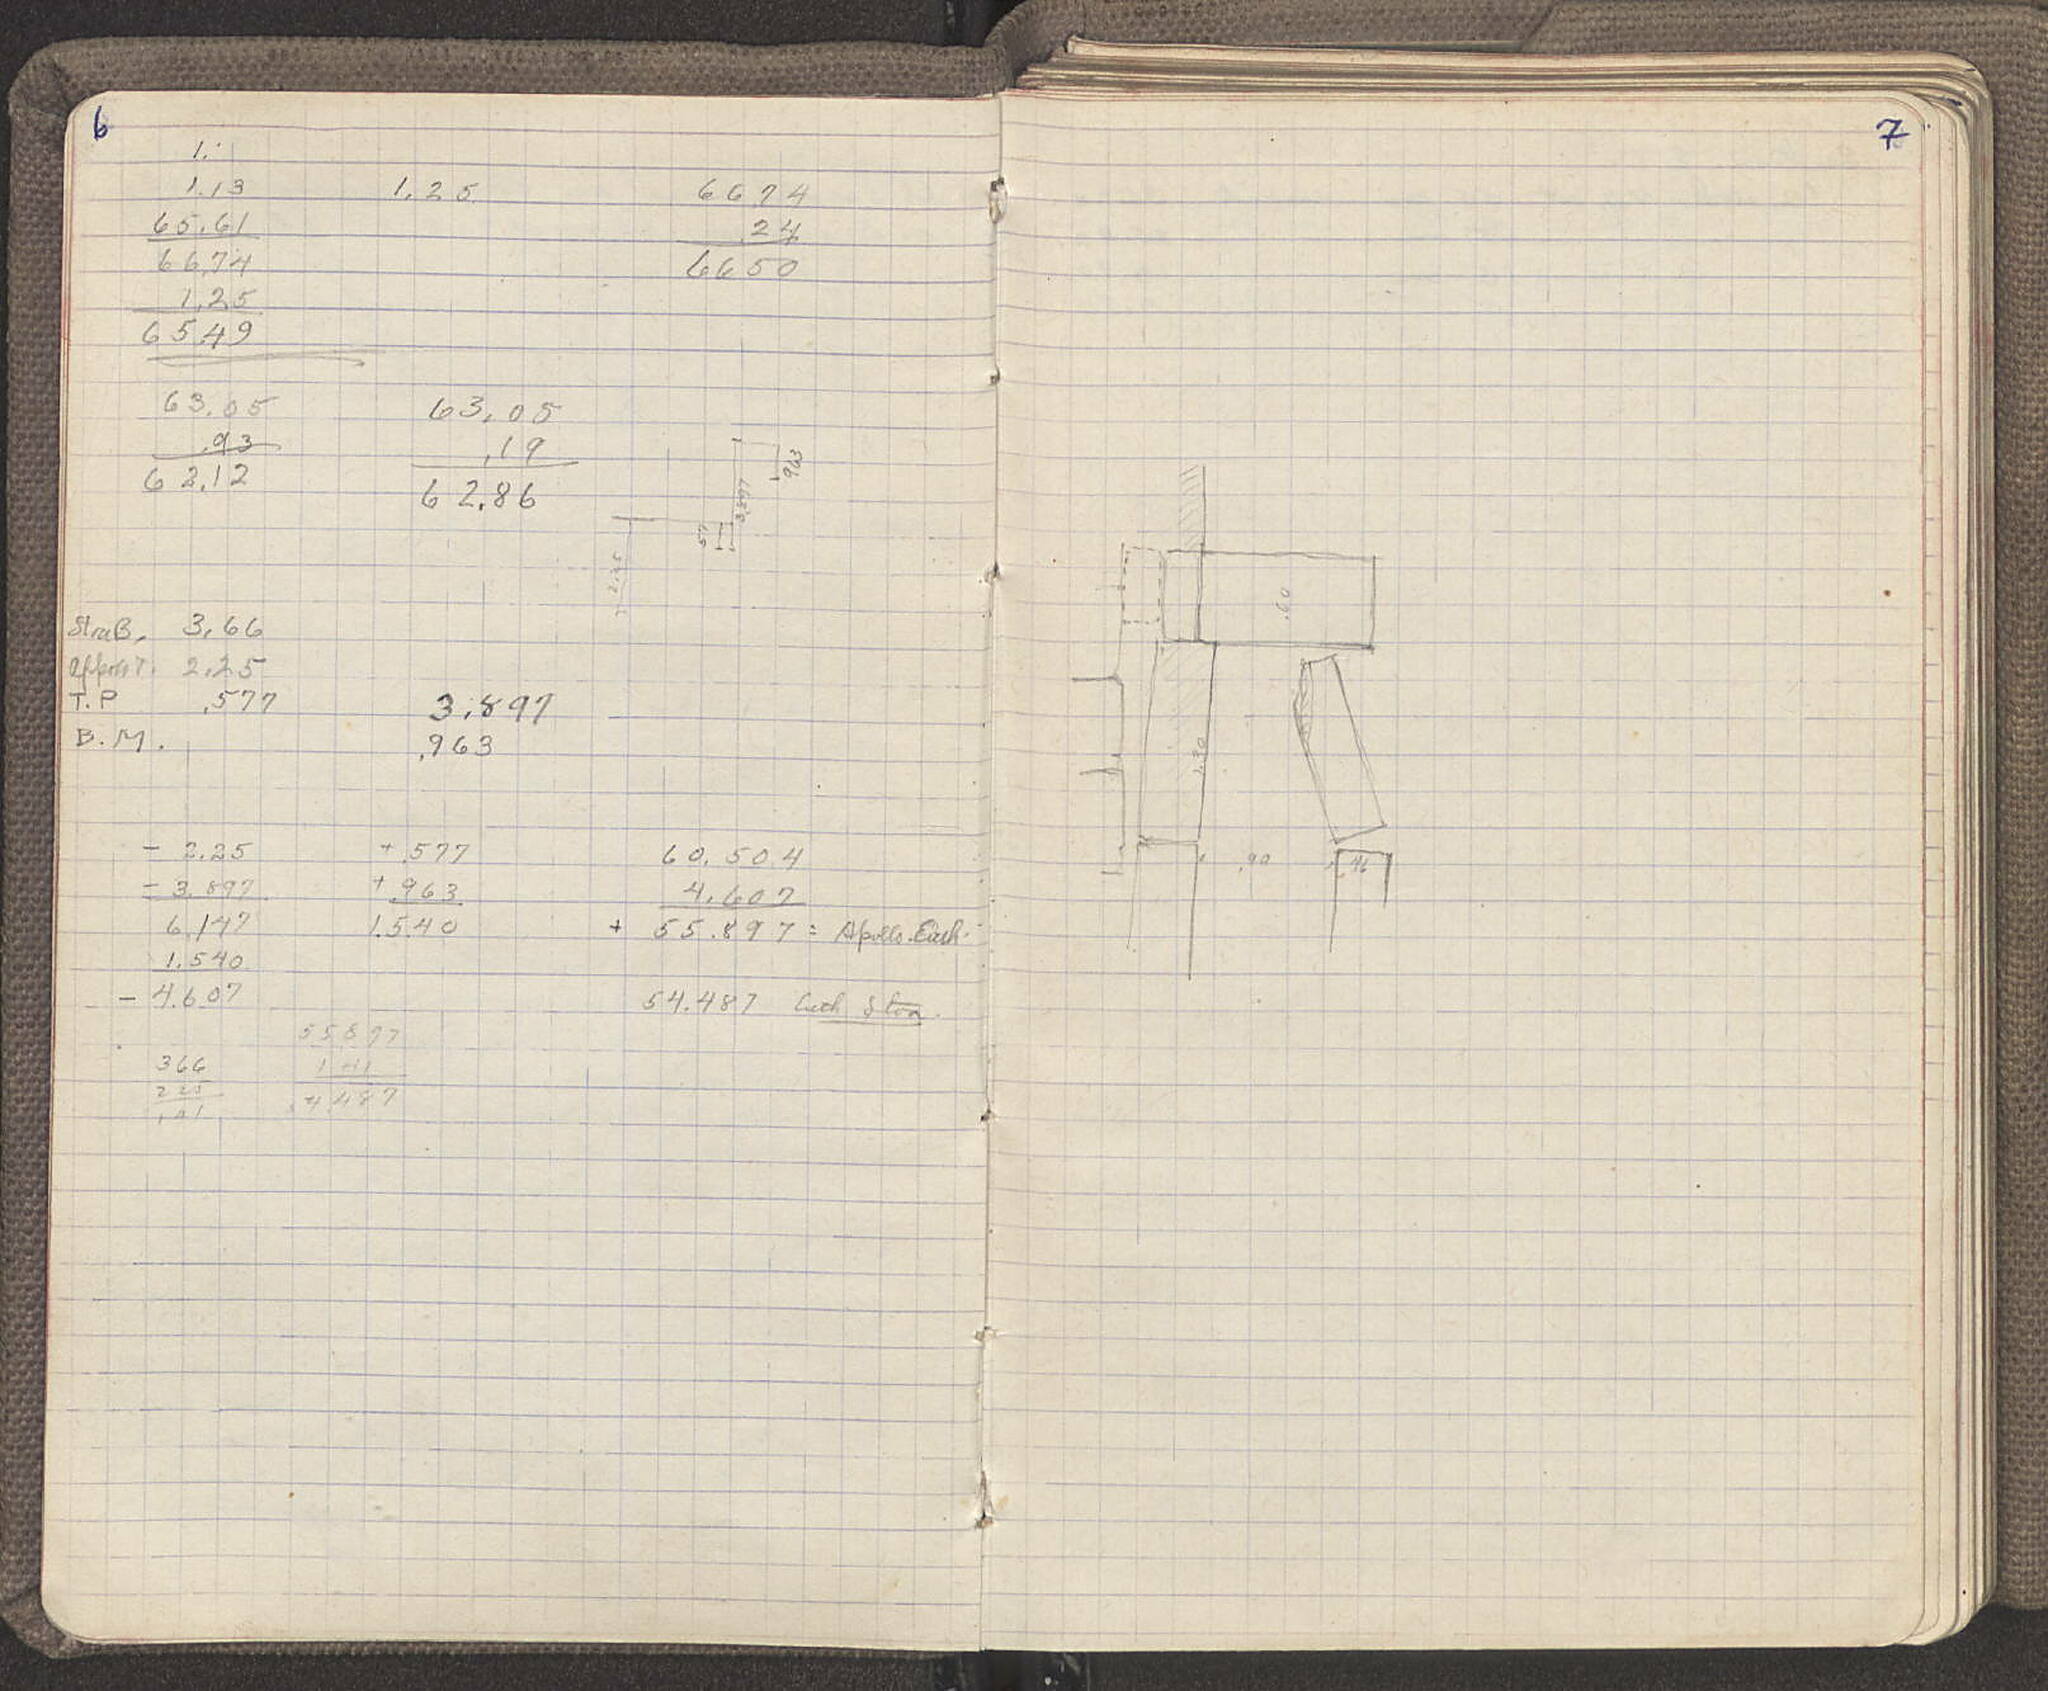 6
1.
1.13 1.25 66.74
65.61 .24
66.74 6650
1.25
65.49
63.05 63.05
.93 .19
62.12 62.86
.963
3.897
57
2.25
StraB. 3.66
2.25
T.P .577 3.897
B.M. .963
- 2.25 + .577 60.504
- 3.897 + .963 4.607
6.147 1.540 + 55.897 = Apollo.Euth.
1.540
- 4.607 54.487 Euth Stoa.
55897
366 141
225 4.487
141
7
.60
1.30
.90 .46